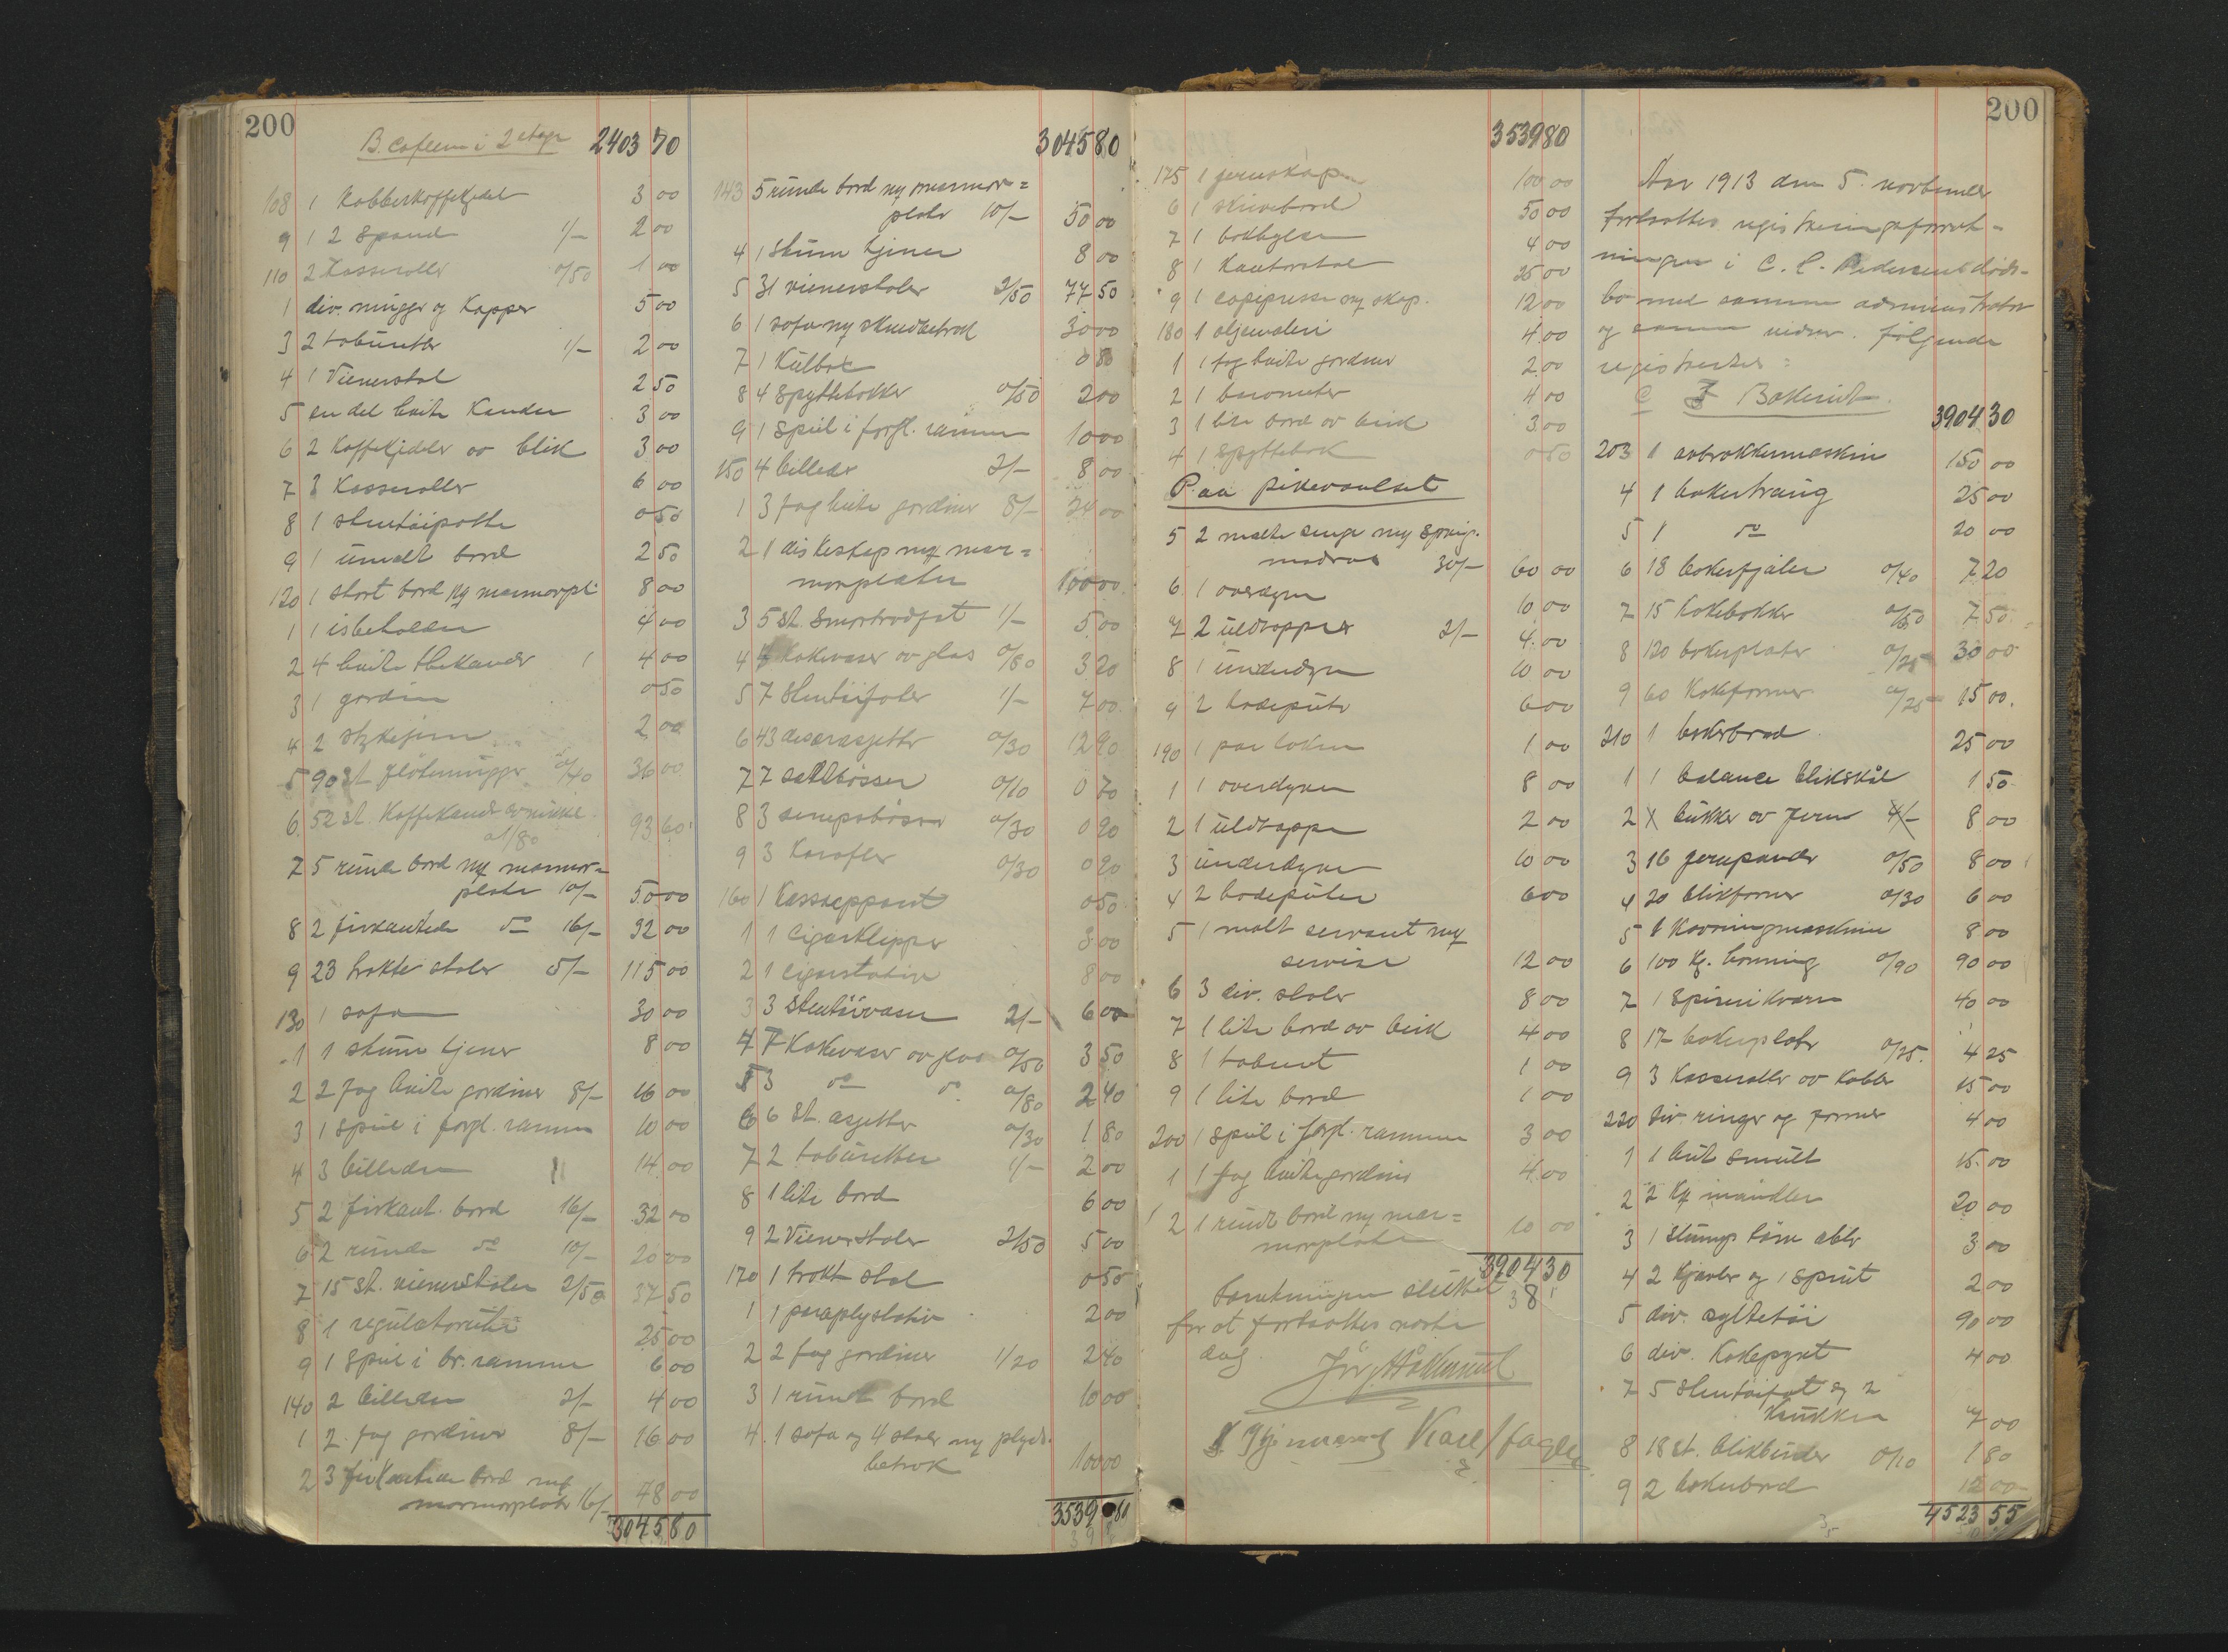 200
B. Cafeen i 2 etage 2403 70
108 1 Kobberkaffekjedel 3 00
9 1 2 Spand 1/- 2 00
110 2 Kasseroller o/50 1 00
1 div. mugger og Kopper 5 00
3 2 taburetter 1/- 2 00
4 1 Vienerstol 2 50
5 en del hvite Kander 3 00
6 2 Kaffekjedeler av blik 3 00
7 3 Kasseroller 6 00
8 1 stentöipotte 0 50
9 1 umalt bord 2 50
120 1 stort bord m/ marmorpl. 8 00
1 1 isbeholder 4 00
2 4 hvite thekander 1 4 00
3 1 gardin 0 50
4 2 strykejern 2 00
5 90 st. flötemugger o/40 36 00
6 52 st. Kaffekander av nikkel
a 1/80 93 60
7 5 runde bord m/ marmor=
plater 10/- 50 00
8 2 firkantede do 16/- 32 00
9 23 trukte stoler 5/- 115 00
130 1 sofa 30 00
1 1 stum tjener 8 00
2 2 fag hvite gardiner 8/- 16 00
3 1 speil i forgl. ramme 10 00
4 3 billeder 14 00
5 2 firkant. bord 16/- 32 00
6 2 runde do 10/- 20 00
7 15 st. vienerstoler 2/50 37 50
8 1 regulatorur 25 00
9 1 speil i br. ramme 6 00
140 2 billeder 2/- 4 00
1 2 fag gardiner 8/- 16 00
2 3 firkantede bord m/
marmorplater 16/- 48 00
3045 80
3045 80
143 5 runde bord m/ marmor=
plater 10/- 50 00
4 1 stum tjener 8 00
5 31 vienerstoler 2/50 77 50
6 1 sofa m/ skindbetræk 30 00
7 1 Kulboks 0 80
8 4 Spyttebakker o/50 2 00
9 1 speil i forgl. ramme 10 00
150 4 billeder 2/- 8 00
1 3 fag hvite gardiner 8/- 24 00
2 1 diskeskap m/ mar=
morplater 100 00
3 5 st. Smørbrødfat 1/- 5 00
4 4 Kakevaser av glas o/80 3 20
5 7 Stentöifater 1/- 7 00
6 43 desertasjetter o/30 12 90
7 7 saltbösser o/10 0 70
8 3 senepsbösser o/30 0 90
9 3 Karafler o/30 0 90
160 1 Kassaapparat 0 50
1 1 Cigarklipper 3 00
2 1 cigarstativ 8 00
3 3 Stentöivaser 2/- 6 00
4 7 Kakevaser av glas o/50 3 50
5 3 do do o/80 2 40
6 6 st. asjetter o/30 1 80
7 2 taburetter 1/- 2 00
8 1 lite bord 6 00
9 2 Vienerstoler 2/50 5 00
170 1 trukt stol 0 50
1 1 paraplystativ 2 00
2 2 fag gardiner 1/20 2 40
3 1 rundt bord 10 00
4 1 sofa og 4 stoler m/ plyds.
betræk 100 00
3539 80
3539 80
175 1 jernskap 100 00
6 1 skrivebord 50 00
7 1 bokhylde 4 00
8 1 Kontorstol 25 00
9 1 copipresse m/ skap. 12 00
180 1 oljemaleri 4 00
1 1 fag hvite gardiner 2 00
2 1 barometer 4 00
3 1 lite bord av eik 3 00
4 1 Spyttebak 0 50
Paa pikeværelset
5 2 malte senge m/ spring.
madras 30/- 60 00
6 1 overdyne 10 00
7 2 uldtepper 2/- 4 00
8 1 underdyne 10 00
9 2 hodeputer 6 00
190 1 par laken 1 00
1 1 overdyne 8 00
2 1 uldteppe 2 00
3 underdyne 10 00
4 2 hodeputer 6 00
5 1 malt servant m/
servise 12 00
6 3 div. stoler 8 00
7 1 lite bord av eik 4 00
8 1 taburet 1 00
9 1 lite bord 1 00
200 1 speil i forgl. ramme 3 00
1 1 fag hvite gardiner 4 00
2 1 rundt bord m/ mar=
morplate 10 00
3904 30
Forretningen sluttet
for at fortsættes næste
dag.
200
Aar 1913 den 5. november
fortsattes registreringsforret=
ningen i C. C. Pedersens döds=
bo med samme administrator
og samme vidner. Følgende
registrertes:
C Bakeriet
3904 30
203 1 avtrækkermaskin 150 00
4 1 bakertraug 25 00
5 1 do 20 00
6 18 bakerfjæler o/40 7 20
7 15 Kakebakker o/50 7 50
8 120 bakerplater o/25 30 00
9 60 Kakeformer o/25 15 00
210 1 bakerbord 25 00
1 1 balance blikskål 1 50
2 bukker av jern 4/- 8 00
3 16 jernpander o/50 8 00
4 20 blikformer o/30 6 00
5 1 Kavringmaskine 8 00
6 100 kg. honning o/90 90 00
7 1 Spineri kværn 40 00
8 17 bakerplater o/25 4 25
9 3 Kasseroller av Kobber 15 00
220 div. ringer og former 4 00
1 1 but smult 15 00
2 2 kg mandler 20 00
3 1 slump törre æbler 3 00
4 2 Kjevler og 1 Sprut 2 00
5 div. syltetöi 90 00
6 div. Kakepynt 4 00
7 5 Stentöifat og 2
Krukker 7 00
8 18 st. blikbender o/10 1 80
9 2 bakerbord 12 00
4523 55